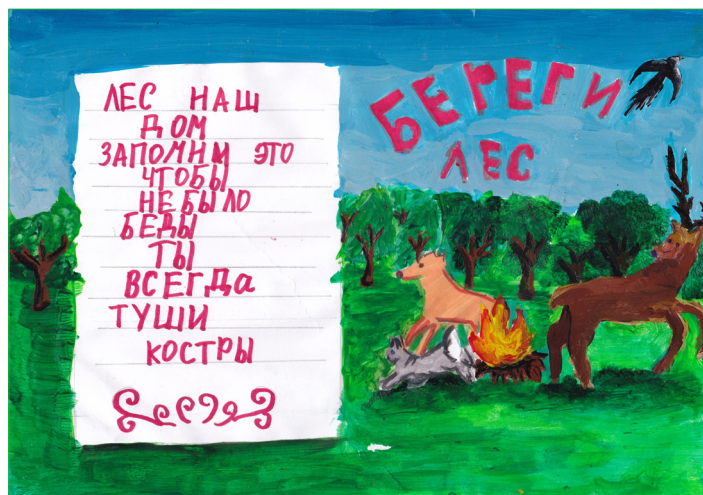 ЛЕС НАШ
ДОМ
ЗАПОМНИ ЭТО
ЧТОБЫ
НЕ БЫЛО
БЕДЫ
ТЫ
ВСЕГДа
ТУШИ
КОСТРЫ
БЕРЕГИ
ЛЕС